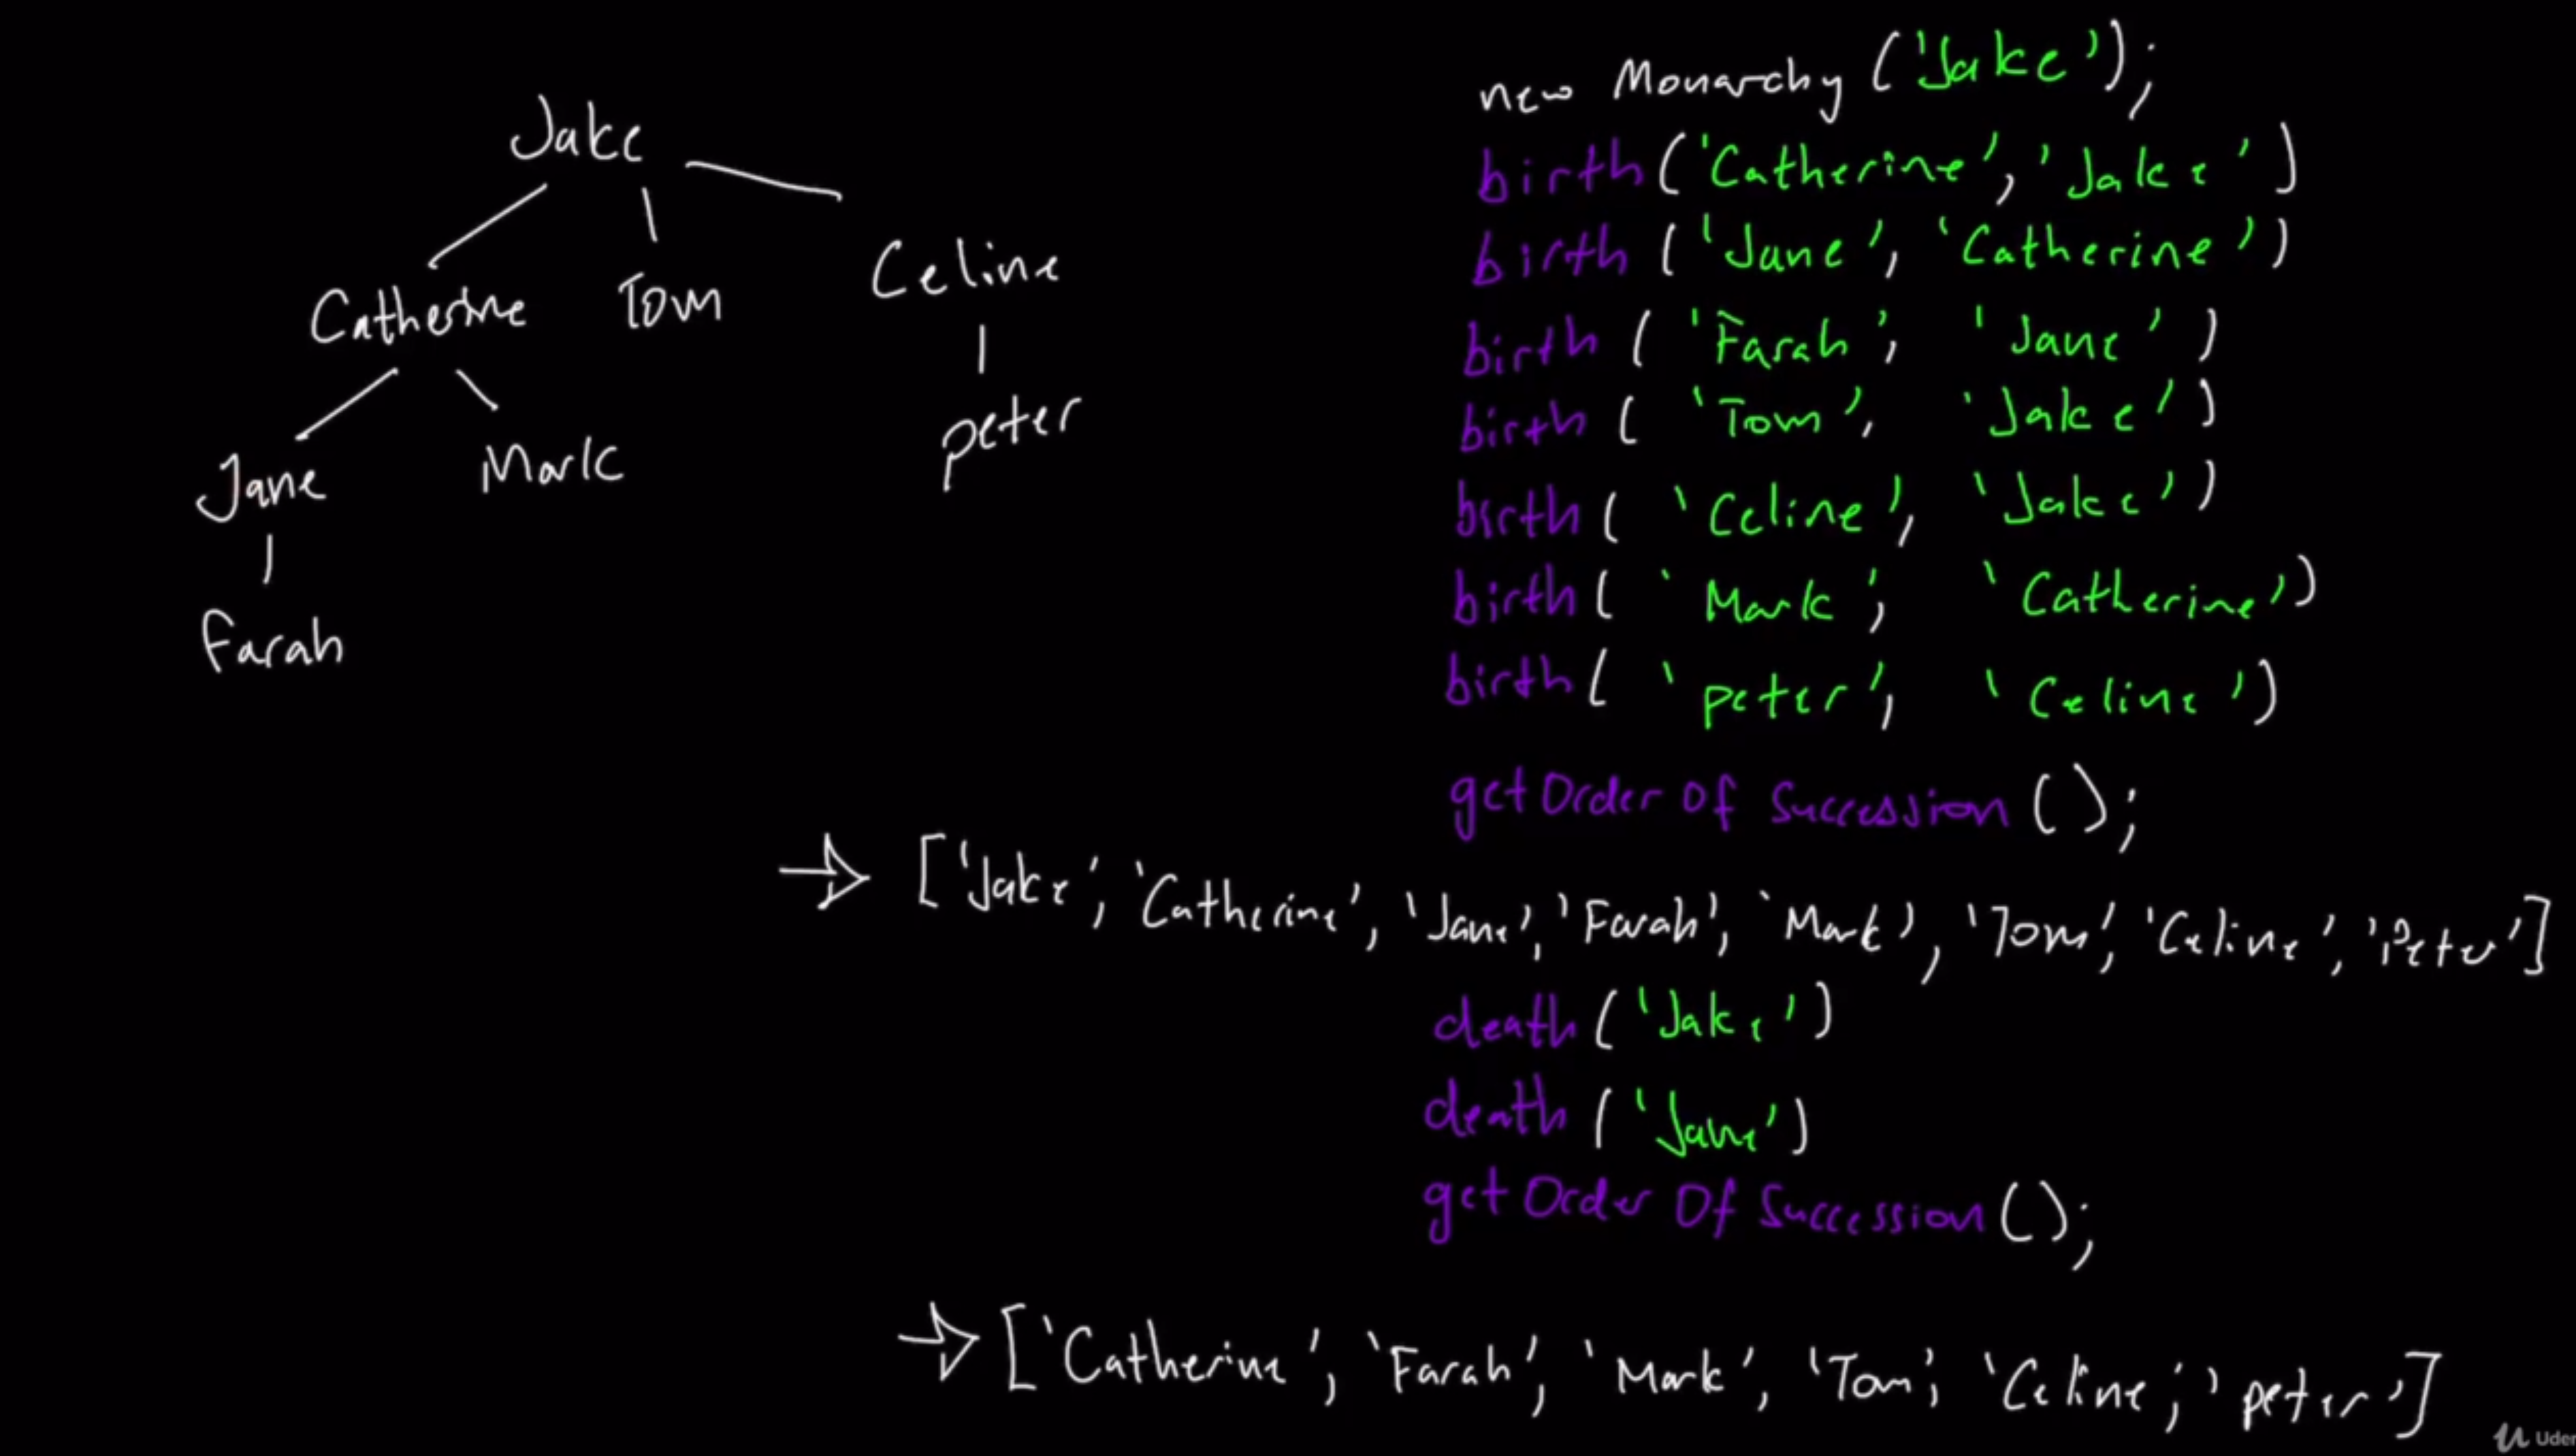 Jake
Catherine Tom Celine
Jane Mark peter
Farah
new Monarchy ('Jake');
birth('Catherine', 'Jake')
birth ('Jane', 'Catherine')
birth ('Farah', 'Jane')
birth ('Tom', 'Jake')
birth ('Celine', 'Jake')
birth ('Mark', 'Catherine')
birth ('peter', 'Celine')
getOrder Of Succession ();
→ ['Jake', 'Catherine', 'Jane', 'Farah', 'Mark', 'Tom', 'Celine', 'Peter']
death ('Jake')
death ('Jane')
getOrder Of Succession ();
→ ['Catherine', 'Farah', 'Mark', 'Tom', 'Celine', 'peter']